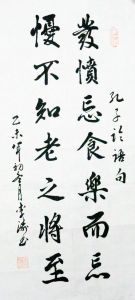 孔子論語句
發憤忘食樂而忘
憂不知老之將至
乙未年初